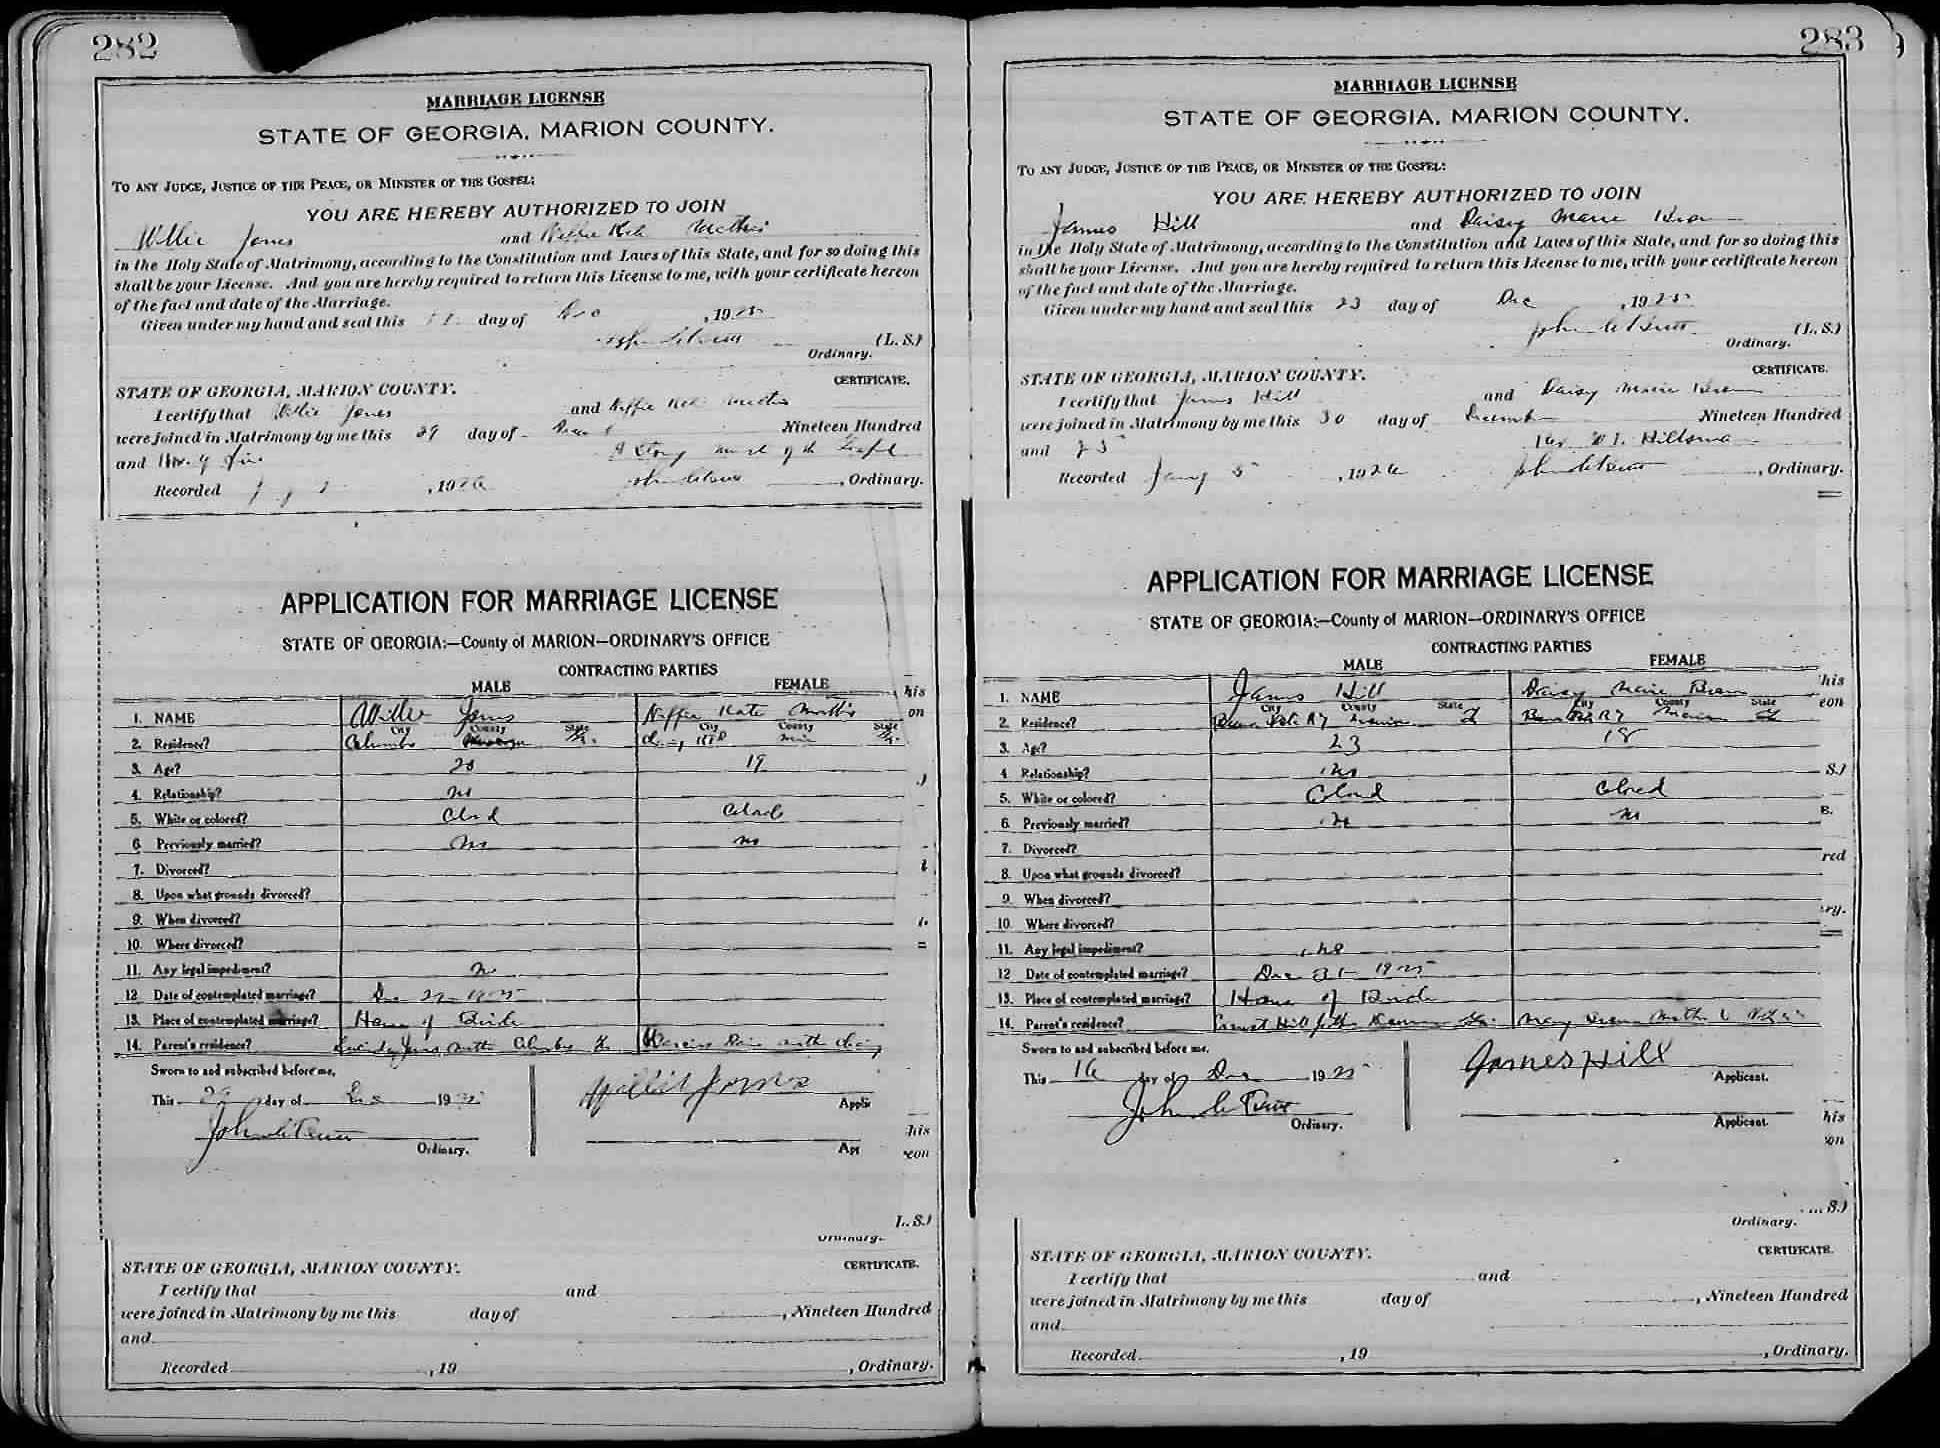 282
MARRIAGE LICENSE
STATE OF GEORGIA, MARION COUNTY.
TO ANY JUDGE, JUSTICE OF THE PEACE, OR MINISTER OF THE GOSPEL:
YOU ARE HEREBY AUTHORIZED TO JOIN
Willie Jones and Neffie Kate Mathis
in the Holy State of Matrimony, according to the Constitution and Laws of this State, and for so doing this
shall be your License. And you are hereby required to return this License to me, with your certificate hereon
of the fact and date of the Marriage.
Given under my hand and seal this day of Dec , 1925
(L. S.)
Ordinary.
CERTIFICATE.
STATE OF GEORGIA, MARION COUNTY.
I certify that Willie Jones and Neffie Kate Mathis
were joined in Matrimony by me this 29 day of Nineteen Hundred
and five
Recorded , 1926 , Ordinary.
APPLICATION FOR MARRIAGE LICENSE
STATE OF GEORGIA:—County of MARION—ORDINARY'S OFFICE
CONTRACTING PARTIES
MALE FEMALE
1. NAME Willie Jones Neffie Kate Mathis
City County State City County State
2. Residence? Columbus Ga.
3. Age? 19
4. Relationship? no
5. White or colored? Colored Colored
6. Previously married? no no
7. Divorced?
8. Upon what grounds divorced?
9. When divorced?
10. Where divorced?
11. Any legal impediment? no
12. Date of contemplated marriage? Dec 1925
13. Place of contemplated marriage? Home of Bride
14. Parent's residence? Jones mother Columbus Ga
Sworn to and subscribed before me,
This day of Dec 1925 Willie Jones
Appli
Ordinary.
App
his
on
his
eon
L. S.)
Ordinary.
CERTIFICATE.
STATE OF GEORGIA, MARION COUNTY.
I certify that and
were joined in Matrimony by me this day of , Nineteen Hundred
and
Recorded , 19 , Ordinary.
283
MARRIAGE LICENSE
STATE OF GEORGIA, MARION COUNTY.
TO ANY JUDGE, JUSTICE OF THE PEACE, OR MINISTER OF THE GOSPEL:
YOU ARE HEREBY AUTHORIZED TO JOIN
James Hill and Daisy Marie
in the Holy State of Matrimony, according to the Constitution and Laws of this State, and for so doing this
shall be your License. And you are hereby required to return this License to me, with your certificate hereon
of the fact and date of the Marriage.
Given under my hand and seal this 23 day of Dec , 1925
(L. S.)
Ordinary.
CERTIFICATE.
STATE OF GEORGIA, MARION COUNTY.
I certify that James Hill and Daisy Marie
were joined in Matrimony by me this 30 day of December Nineteen Hundred
and 25
Recorded Jany 5 , 1926 , Ordinary.
APPLICATION FOR MARRIAGE LICENSE
STATE OF GEORGIA:—County of MARION—ORDINARY'S OFFICE
CONTRACTING PARTIES
MALE FEMALE
1. NAME James Hill Daisy Marie
City County State City County State
2. Residence? Buena Vista Marion Ga Marion Ga
3. Age? 23 18
4. Relationship? no
5. White or colored? Colored Colored
6. Previously married? no no
7. Divorced?
8. Upon what grounds divorced?
9. When divorced?
10. Where divorced?
11. Any legal impediment? no
12 Date of contemplated marriage? Dec 31 1925
13. Place of contemplated marriage? Home of Bride
14. Parent's residence? Hill father Mary mother
Sworn to and subscribed before me,
This 16 day of Dec 1925 James Hill
Applicant.
Ordinary. Applicant.
his
eon
S.)
red
ry.
his
on
S.)
Ordinary.
CERTIFICATE.
STATE OF GEORGIA, MARION COUNTY.
I certify that and
were joined in Matrimony by me this day of , Nineteen Hundred
and
Recorded , 19 , Ordinary.